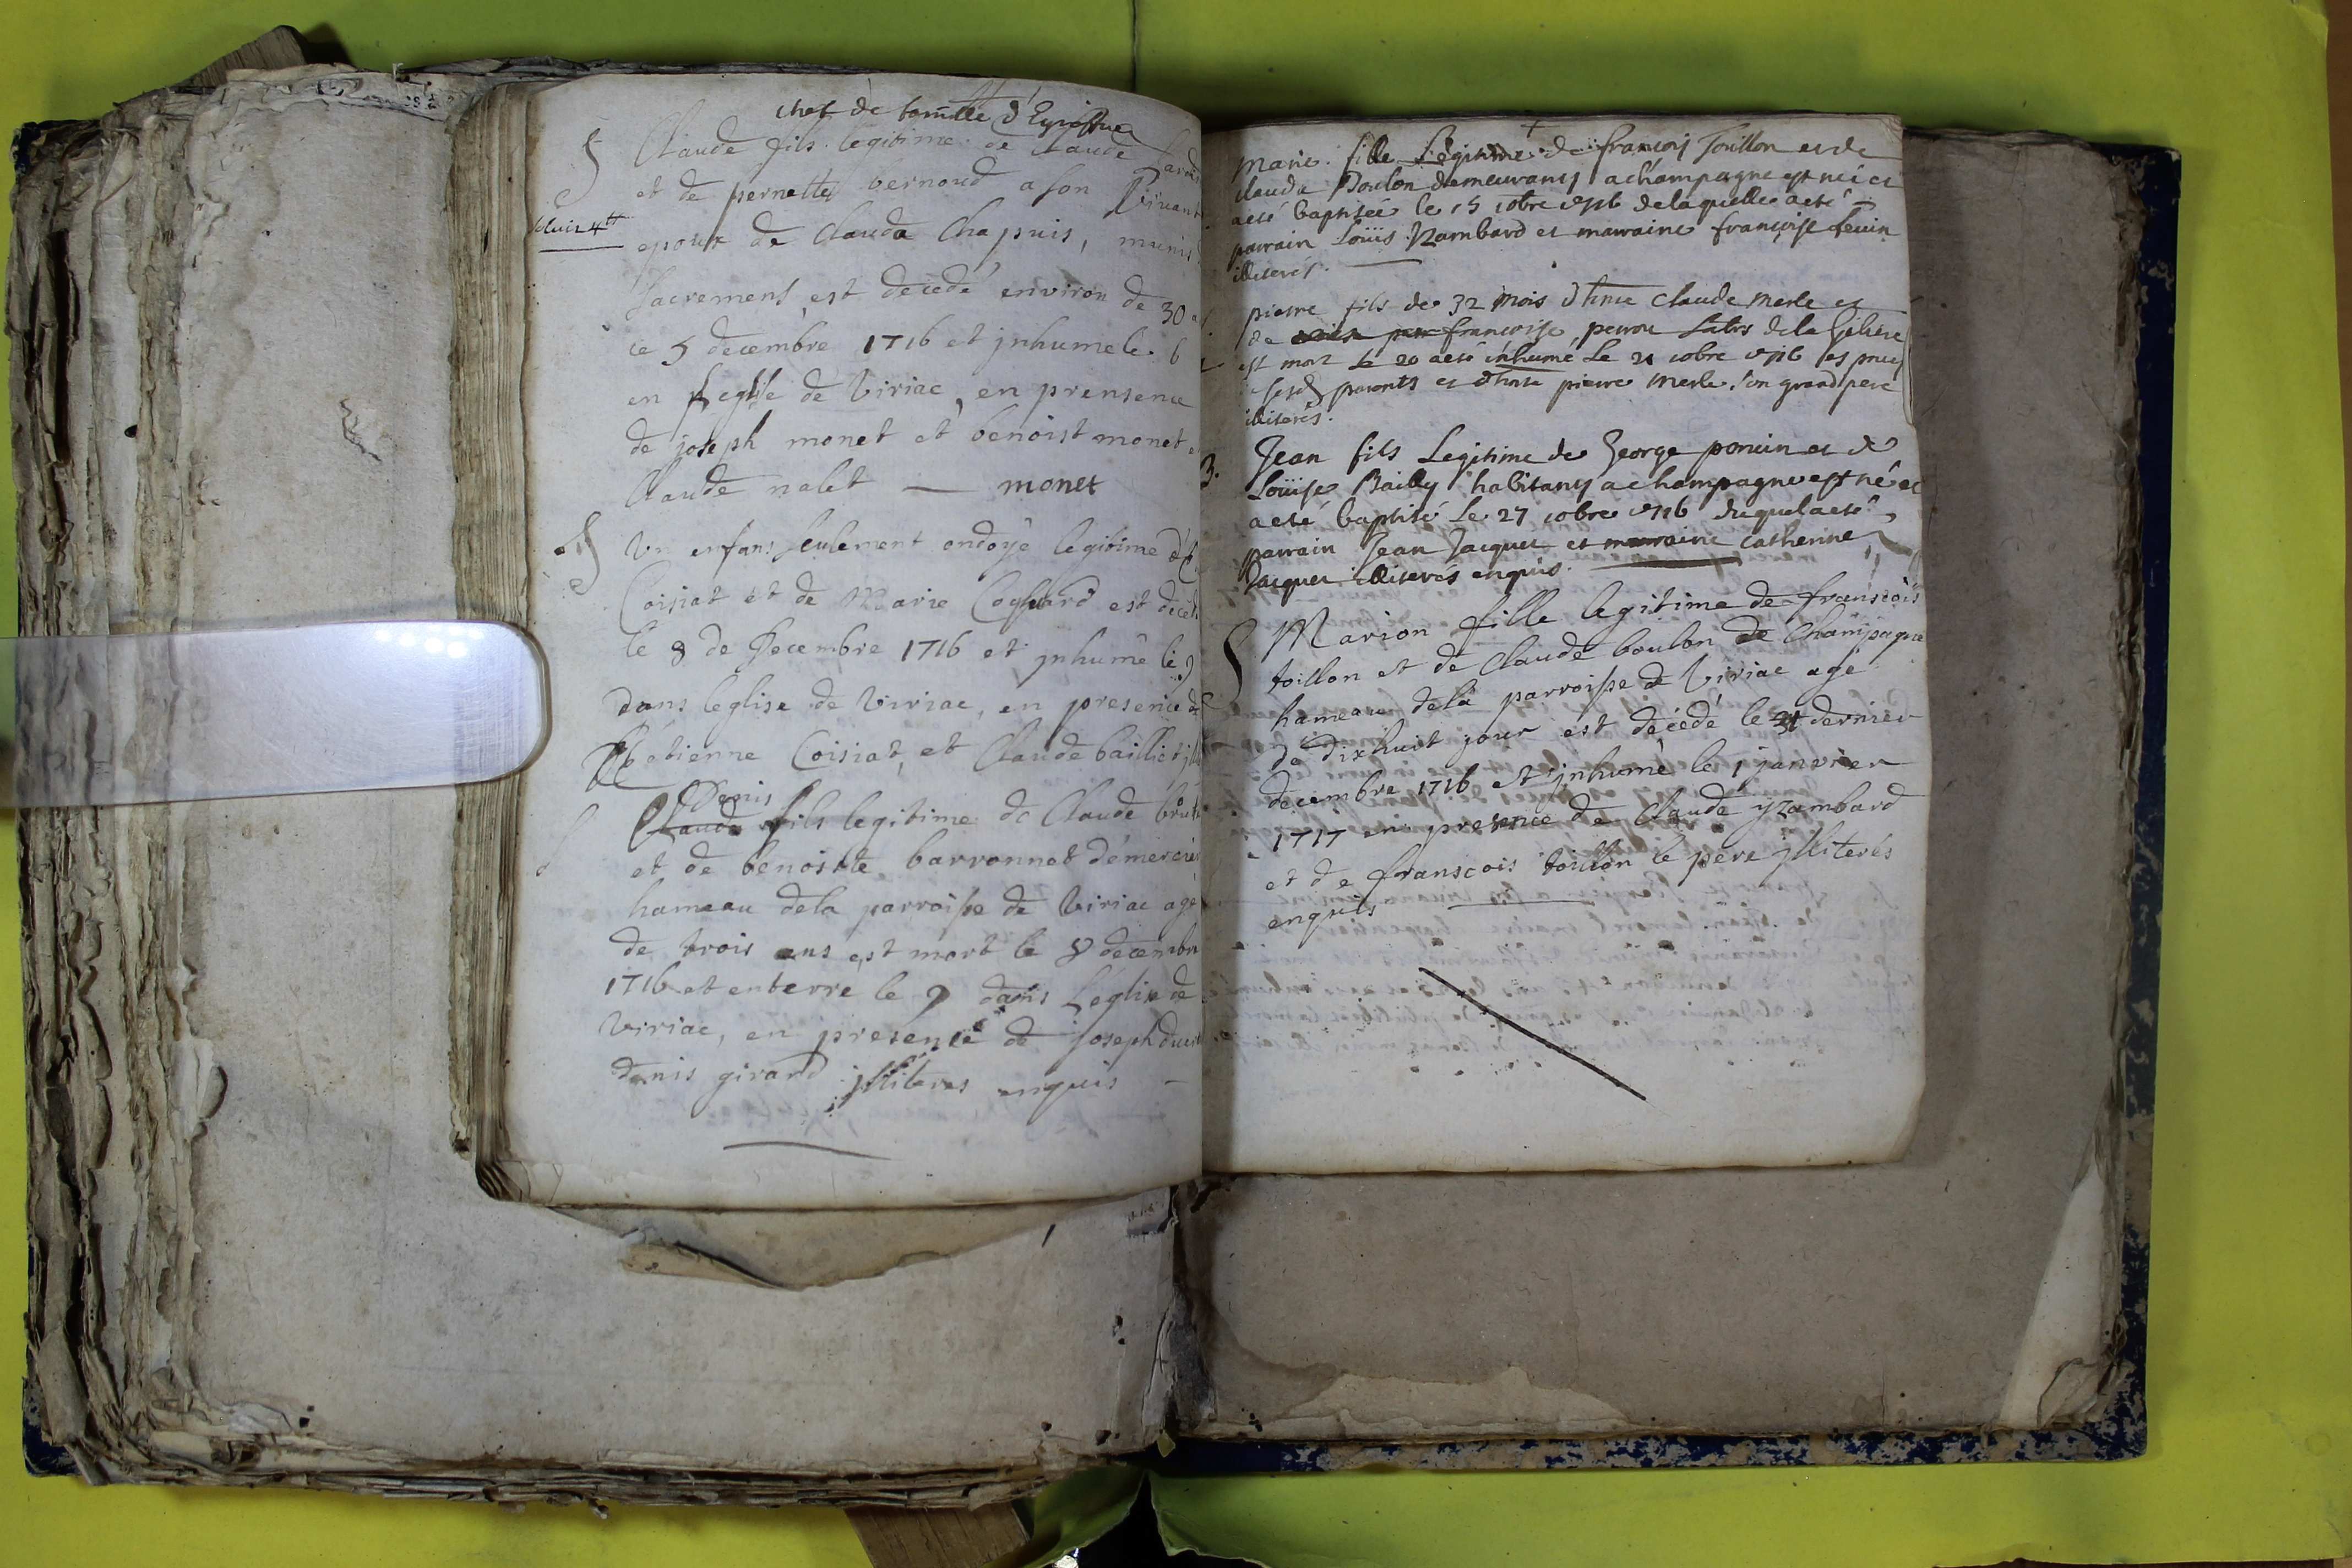 chef de famille d'Eyriasuer
Claude fils legitime de Claude
et de pernette vernoud a son Vivant
epoux de Clauda Chapuis, munis
Sacremens est decedé environ de 30
ce 5 decembre 1716 et jnhume le 6
en l'eglise de Viriac, en prensence
de joseph monet et benoist monet
Claude nalet — monet
Vn enfans seulement ondoÿé legitime
Coisiat et de Marie Coghard est deced
le 8 de Decembre 1716 et jnhumé le 9
dans l'eglise de Viriac, en presence de
étienne Coisiat, et Claude baillie
Denis
Claude fils legitime de Claude
et de benoiste barronnet démercie
hameau dela parroisse de Viriac agé
de trois ans est mort le 8 decembre
1716 et enterre le 9 dans l'eglise de
Viriac, en presence de joseph
denis girard jlliteres enquis —
Marie fille Légitime de françois Toillon et de
Clauda Boulon demeurants a champagne est née et
a eté baptisée le 15 10bre 1716 de laquelle a eté
parrain Loüis Nambard et marraine françoise
illiterés.
pierre fils de 32 mois d'hnê Claude Merle et
de françoise perron
est mort le 20 a eté inhumé Le 21 10bre 1716 es pnces
de sesd parents et d'hnte pierre Merle son grand pere
illiterés.
3.
Jean fils Legitime de George poncin et de
Loüise Bailly habitants a champagne est né et
a eté baptisé Le 27 10bre 1716 duquel a eté
parrain Jean Jacquet et marraine Catherine
Jacquet illiterés enquis.
Marion fille legitime de franscois
toillon et de Claude boulon de Champagne
hameau dela parroisse de Viriac agé
de dixhuit jour est décédé le 31 dernier
decembre 1716 et jnhumé le 1 janvier
1717 en presence de Claude yzambard
et de franscois toillon le pere jlliterés
enquis